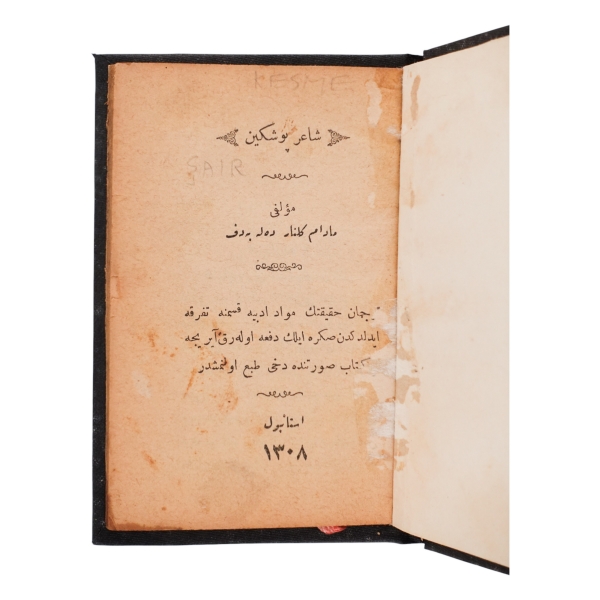 KESME
شاعر پوشكين
ŞAIR
مؤلفى
مادام كلنار ده له به دف
ترجمان حقيقتك مواد ادبيه قسمنه تفرقه
ايدلدكدن صكره ايلك دفعه اوله رق آيريجه
كتاب صورتنده دخى طبع اولنمشدر
استانبول
١٣٠٨